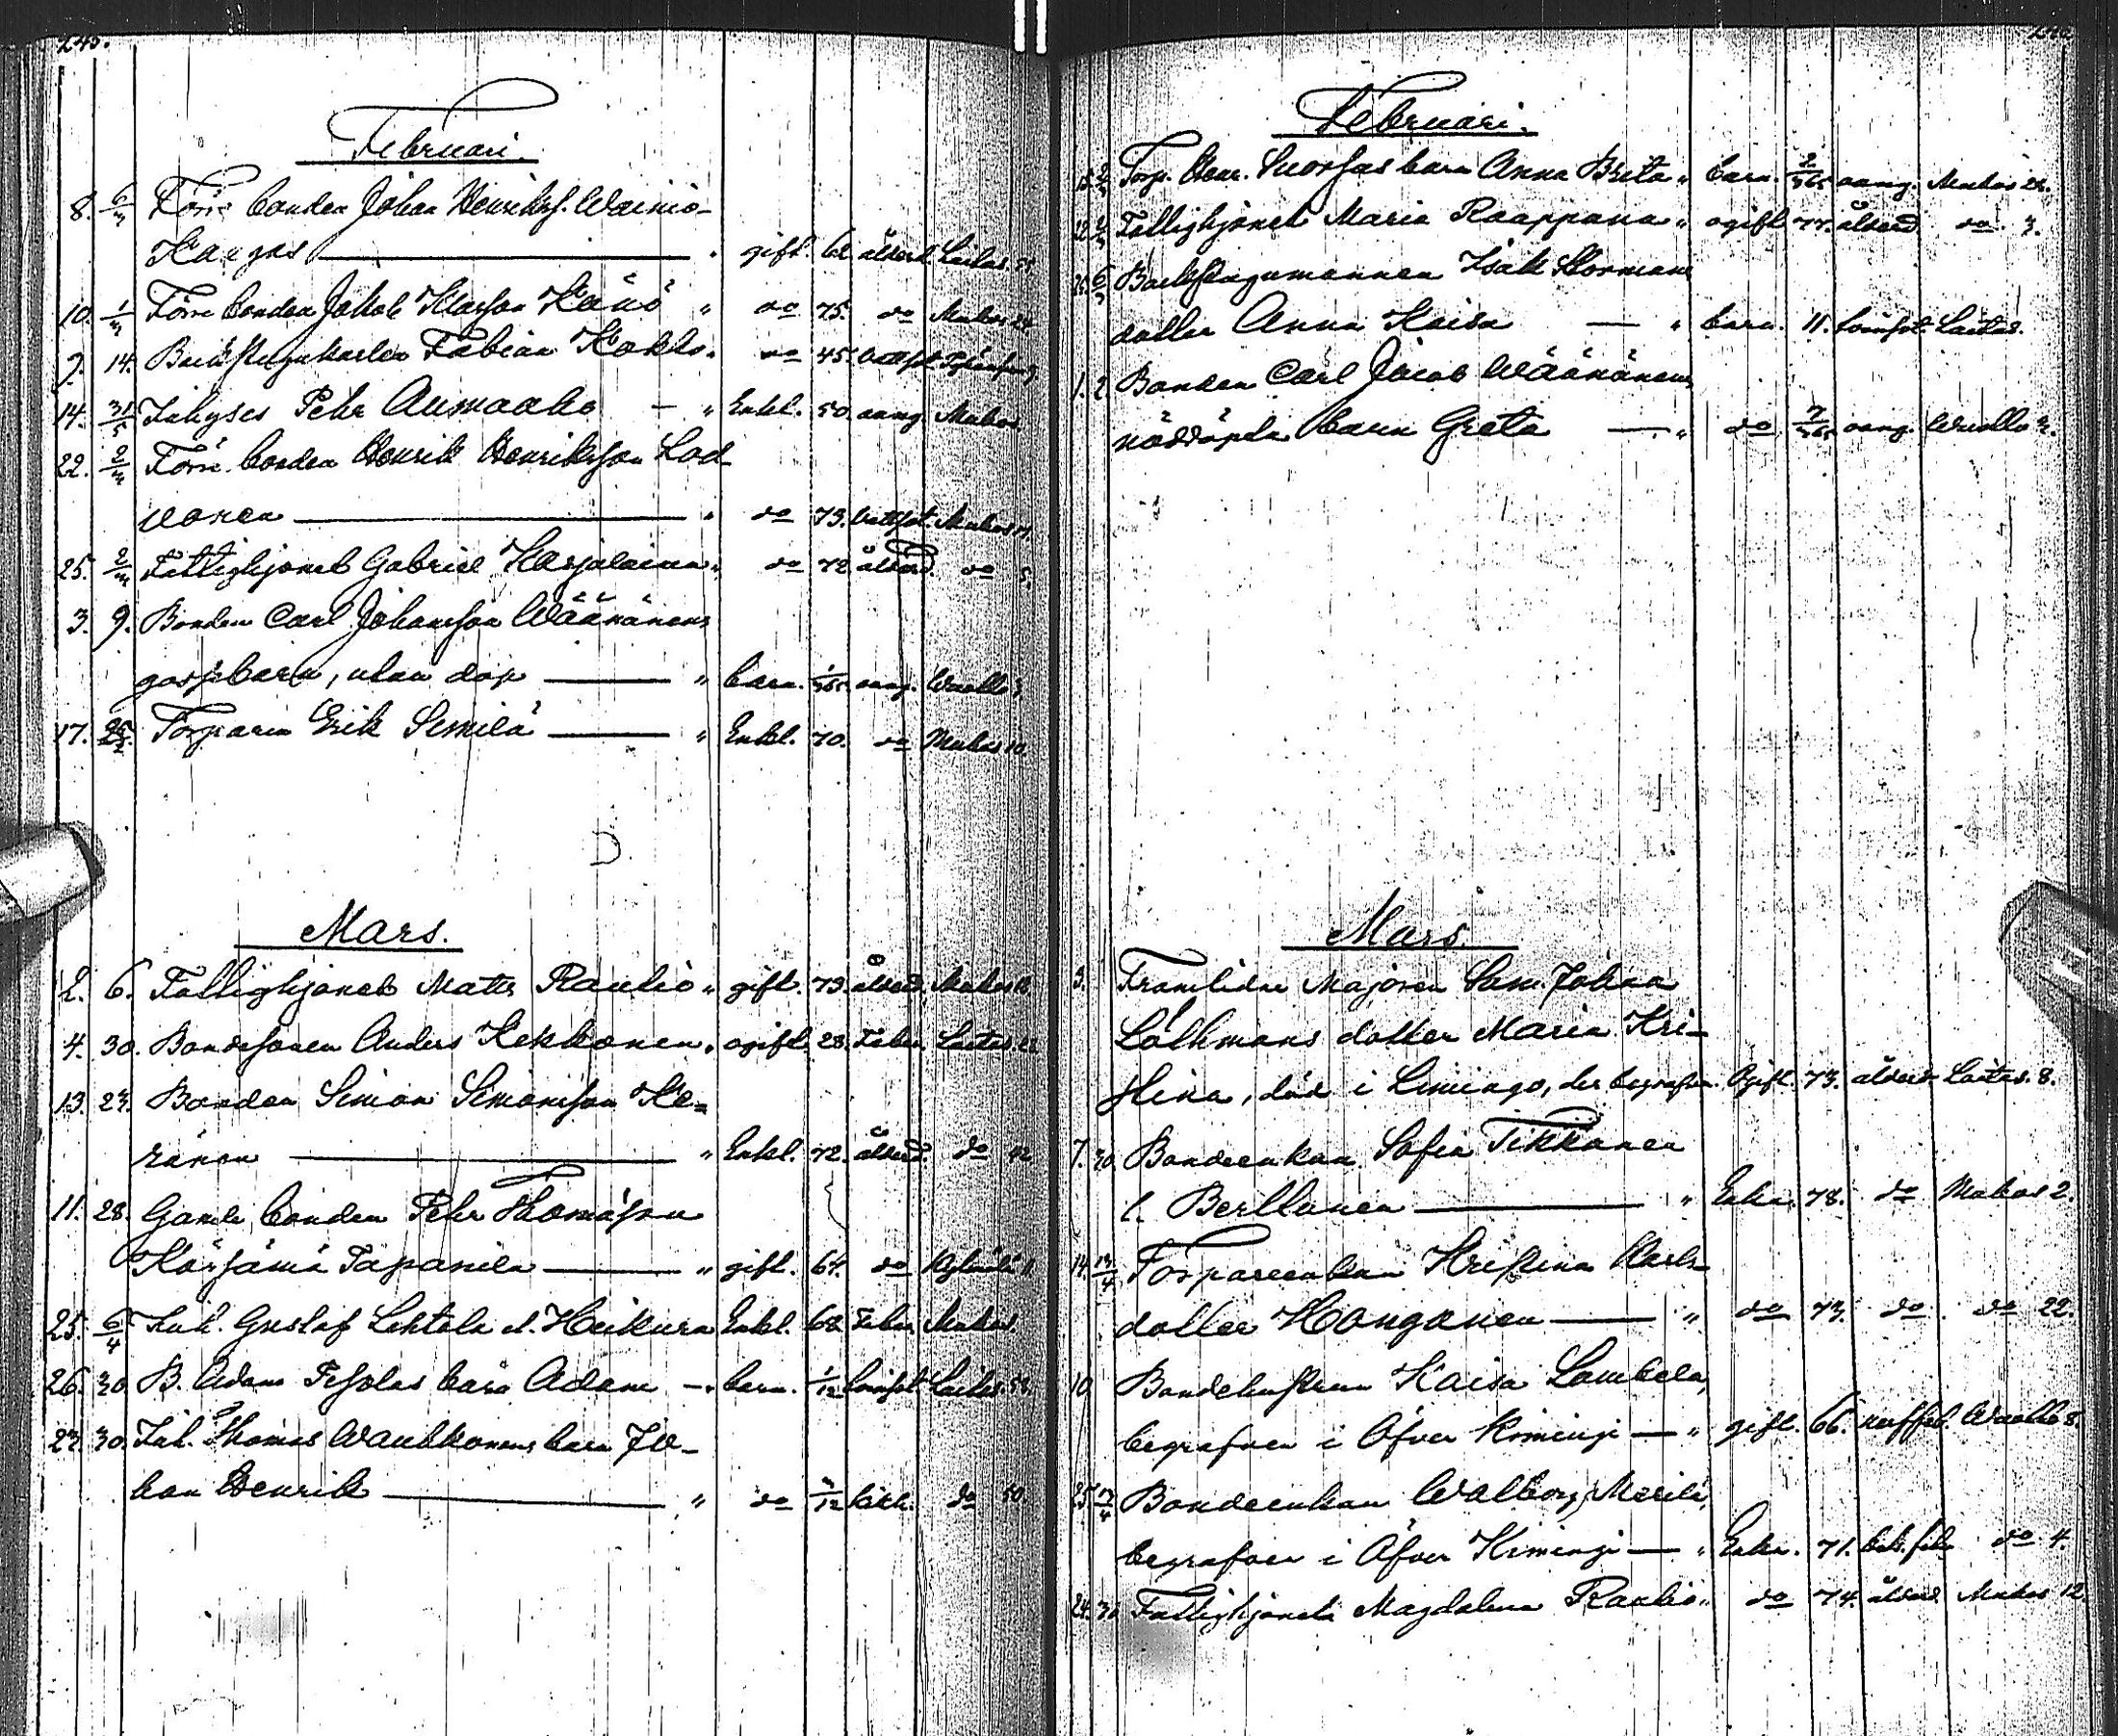 245.
Februari.
8. 6/3 Förre bonden Johan Henriks. Wainio-
Kangas " gift. 62 ålderd. Laitas
10. 1/3 Förre bonden Jakob Klasson Känö " do 75. do Muhos 24
7. 14. Backstugukarlen Fabian Kokko. do 45.
14. 31/5 Inhyses Pehr Aumaaho — " Enkl. 50. oang. Muhos
22. 2/3 Förre bonden Henrik Henriksson Lod-
vonen " do 73. Muhos
25. 2/3 Fattighjonet Gabriel Karjalainen " do 72 ålderd. do
3. 9. Bonden Carl Johansson Wäänänens
gossebarn, utan dop " barn. 1/365 oang. Waala
17. 25/3 Torparen Erik Similä " Enkl. 70. do Muhos 10.
Mars.
2. 6. Fattighjonet Matts Rautio " gift. 73. ålderd. Muhos
4. 30. Bondesonen Anders Kekkonen. ogift. 28. Feber. Laitas.
13. 23. Bonden Simon Simonsson Ke-
ränen " Enkl. 72. ålderd. do 42
11. 28. Gamle bonden Pehr Thomasson
Körjämä Tapanila " gift. 64. do
25. 6/4 Inh. Gustaf Lehtela l. Heikura Enkl. 68 Feber Muhos.
26. 30. B. Adam barn Adam —. barn. 1/12 Laitas.
23. 30. Inh. Thomas barn Jo-
han Henrik " do /12 do 50.
Februari.
15. 2/3 Torp. Henr. Suorsas barn Anna Brita " barn. 2/365 oang. Muhos 22.
22. 2/3 Fattighjonet Maria Raappana " ogift 77. ålderd do 3.
25. 6/3 Backstugumannen Isak Stormans
dotter Anna Kaisa — " barn. 11. Laitas.
1. 2. Bonden Carl Jacob Wäänänens
nöddöpta barn Greta — " do 7/365 oang. Waala 3.
Mars.
3. Framlidne Majoren Sam. Johan
Löthmans dotter Maria Kri-
stina, död i Limingo, der begrafven. Ogift. 73. ålderd. Laitas. 8.
7. 20. Bondeenkan Sofia Tikkanen
l. " Enka. 78. do Muhos 2.
14. 13/4 Torpareenkan Kristina Karls-
dotter Kanganen " do 73. do do 22.
10. Bondehustrun Kaisa Lambela,
begrafven i Öfver Kiminge — " gift. 66. Waala 8.
25. 13/4 Bondeenkan Walborg Merilä,
begrafven i Öfver Kiminge — " Enka. 71. do 4.
24. 30. Fattighjonet Magdalena Rautio " do 74. ålderd Muhos 12.